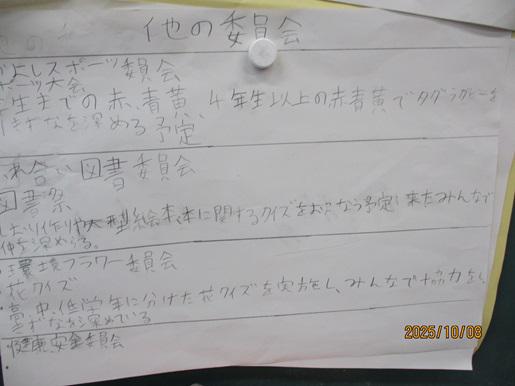 他の委員会
よしスポーツ委員会
スポーツ大会
年生までの赤、青黄、4年生以上の赤青黄でタグラグビーを
きずなを深める予定
図書委員会
図書祭
しおり作りや大型絵本、本に関するクイズをおこなう予定!来たみんなで
仲を深める。
環境フラワー委員会
・花クイズ
・高、中、低学年に分けた花クイズを実施し、みんなで協力をし
きずなを深めている
健康安全委員会
・
2025/10/08